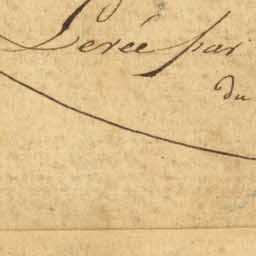 Levée par
du